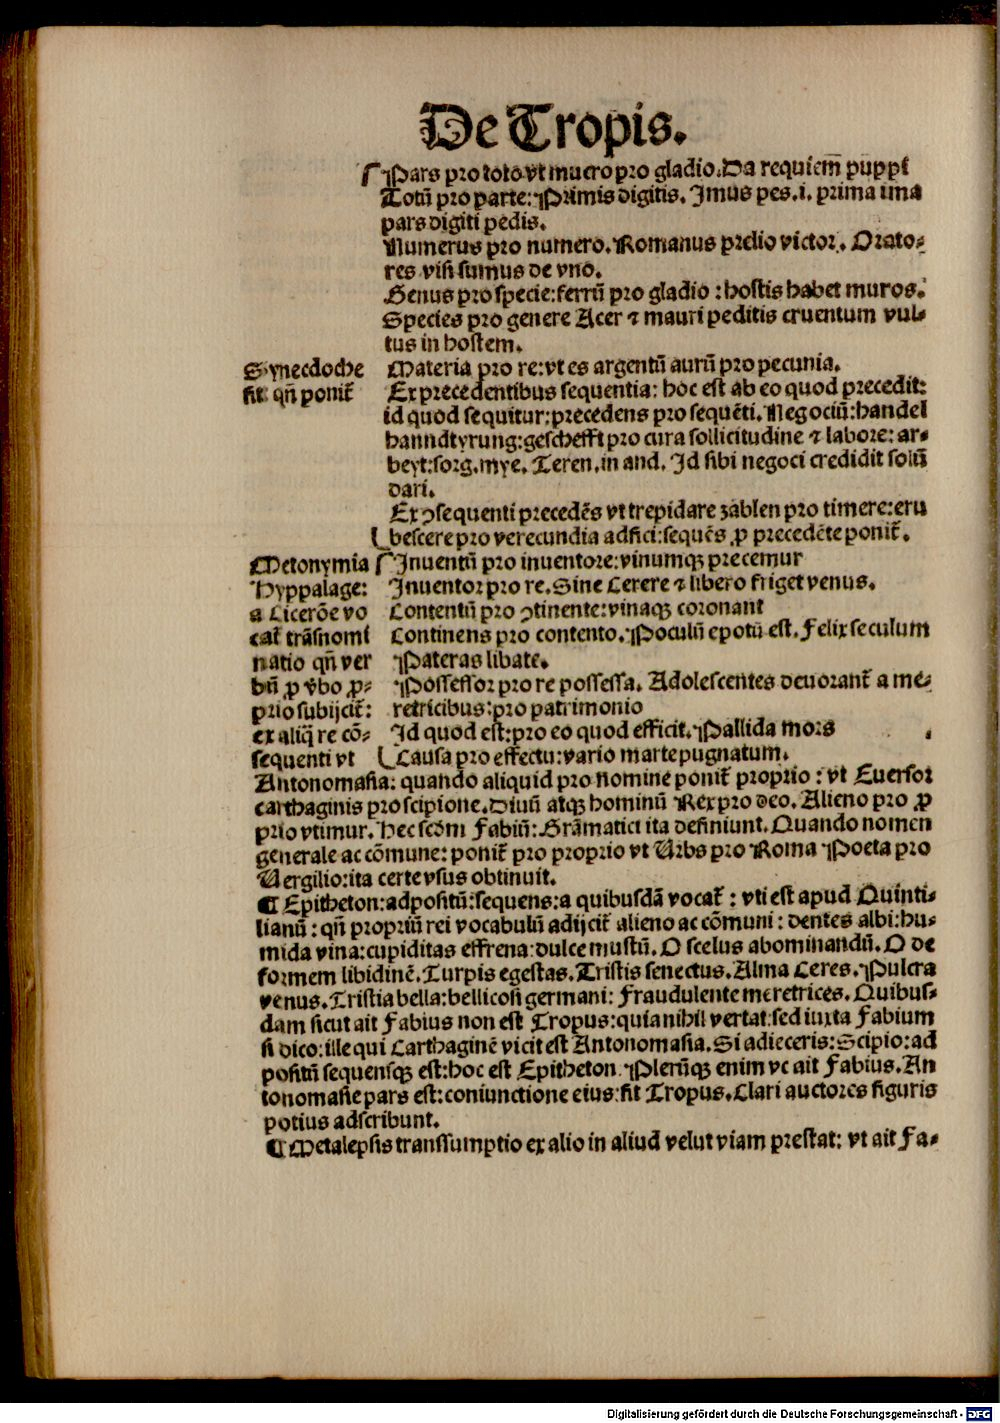 De Tropis.
Pars pro toto vt mucro pro gladio. Da requiem̄ puppi
Totū pro parte: Primis digitis. Imus pes .i. prima ima
pars digiti pedis.
Numerus pro numero. Romanus prelio victor. Orato-
res visi sumus de vno.
Genus pro specie: ferrū pro gladio: hostis habet muros.
Species pro genere Acer ⁊ mauri peditis cruentum vul-
tus in hostem.
Synecdoche
fit qn̄ ponit᷑
Materia pro re: vt es argentū aurū pro pecunia.
Ex precedentibus sequentia: hoc est ab eo quod precedit:
id quod sequitur: precedens pro sequēti. Negociū: handel
hanndtyrung: geschefft pro cura sollicitudine ⁊ labore: ar-
beyt: sorg. mye. Teren. in and. Id sibi negoci credidit solū
dari.
Ex ꝯsequenti precedēs vt trepidare zablen pro timere: eru
bescere pro verecundia adfici: sequēs ꝓ precedēte ponit᷑.
Metonymia
Hyppalage:
a Cicerōe vo
cat᷑ trāsnomi
natio qn̄ ver
bū ꝓ v̄bo ꝓ-
prio subijcit᷑:
ex aliq̄ re cō-
sequenti vt
Inuentū pro inuentore: vinumqꝫ precemur
Inuentor pro re. Sine Cerere ⁊ libero friget venus.
Contentū pro ꝯtinente: vinaqꝫ coronant
Continens pro contento. Poculū epotū est. Felix seculum
Pateras libate.
Possessor pro re possessa. Adolescentes deuorant᷑ a me-
retricibus: pro patrimonio
Id quod est: pro eo quod efficit. Pallida mors
Causa pro effectu: vario marte pugnatum.
Antonomasia: quando aliquid pro nomine ponit᷑ proprio: vt Euersor
carthaginis pro scipione. Diuū atqꝫ hominū Rex pro deo. Alieno pro ꝓ
prio vtimur. Hec scd̄m Fabiū: Grāmatici ita definiunt. Quando nomen
generale ac cōmune: ponit᷑ pro proprio vt Vrbs pro Roma Poeta pro
Vergilio: ita certe vsus obtinuit.
¶ Epitheton: adpositū: sequens: a quibusdā vocat᷑: vti est apud Quinti-
lianū: qn̄ propriū rei vocabulū adijcit᷑ alieno ac cōmuni: dentes albi: hu-
mida vina: cupiditas effrena: dulce mustū. O scelus abominandū. O de
formem libidinē. Turpis egestas. Tristis senectus. Alma Ceres. Pulcra
venus. Tristia bella: bellicosi germani: Fraudulente meretrices. Quibus-
dam sicut ait Fabius non est Tropus: quia nihil vertat: sed iuxta Fabium
si dico: ille qui Carthaginē vicit est Antonomasia. Si adieceris: Scipio: ad
positū sequensqꝫ est: hoc est Epitheton. Plerūqꝫ enim vt ait Fabius. An
tonomasie pars est: coniunctione eius: fit Tropus. Clari auctores figuris
potius adscribunt.
¶ Metalepsis transsumptio ex alio in aliud velut viam prestat: vt ait Fa-
Digitalisierung gefördert durch die Deutsche Forschungsgemeinschaft - DFG